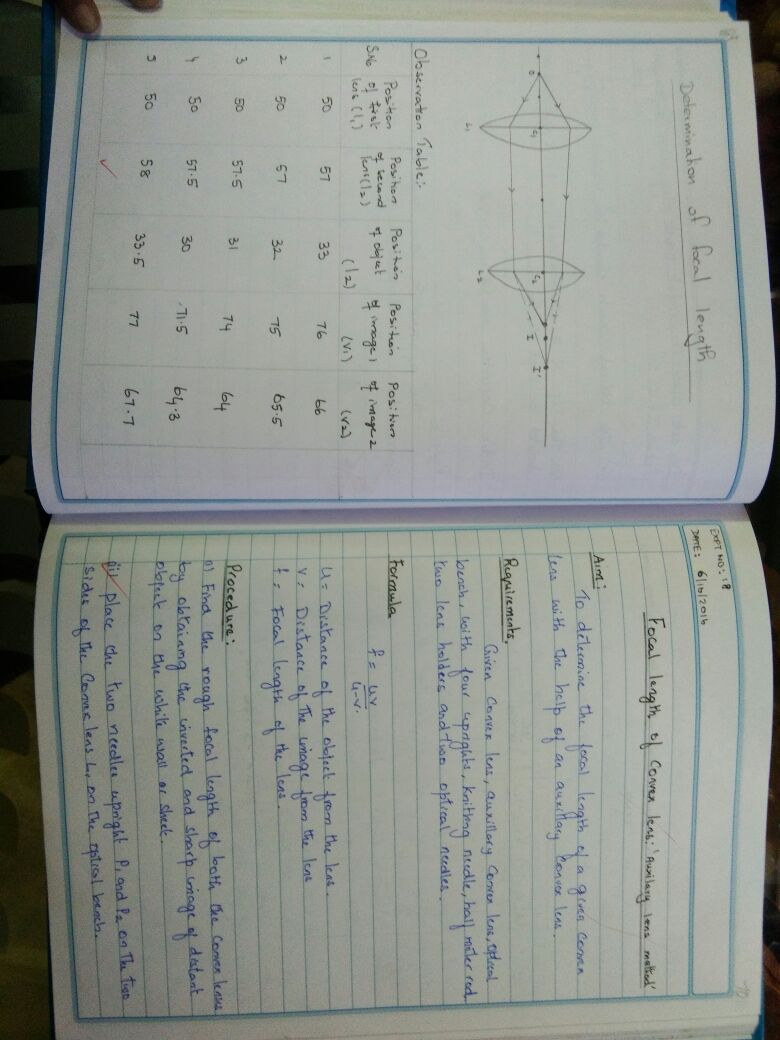 67
Determination of focal length
O
C1
L1
C2
L2
I
I'
Observation Table:-
S.No Position of first lens (l1) Position of second lens (l2) Position of object (l2) Position of image 1 (v1) Position of image 2 (v2)
1 50 57 33 76 66
2 50 57 32 75 65.5
3 50 57.5 31 74 64
4 50 57.5 30 71.5 64.3
5 50 58 33.5 77 67.7
EXPT NO: 18
DATE: 6/10/2016
70
Focal length of Convex lens: 'Auxilary lens method'
Aim:
To determine the focal length of a given convex
lens with the help of an auxilary convex lens.
Requirements.
Given convex lens, auxillary convex lens, optical
bench, with four uprights, knitting needle, half meter rod
two lens holders and two optical needles.
Formula
f = uv
u-v.
U = Distance of the object from the lens.
V = Distance of the image from the lens
f = Focal length of the lens.
Procedure:
i) Find the rough focal length of both the convex lenses
by obtaining the inverted and sharp image of distant
object on the white wall or sheet.
ii) place the two needles upright P1 and P2 on the two
sides of the Convex lens L1 on the optical bench.